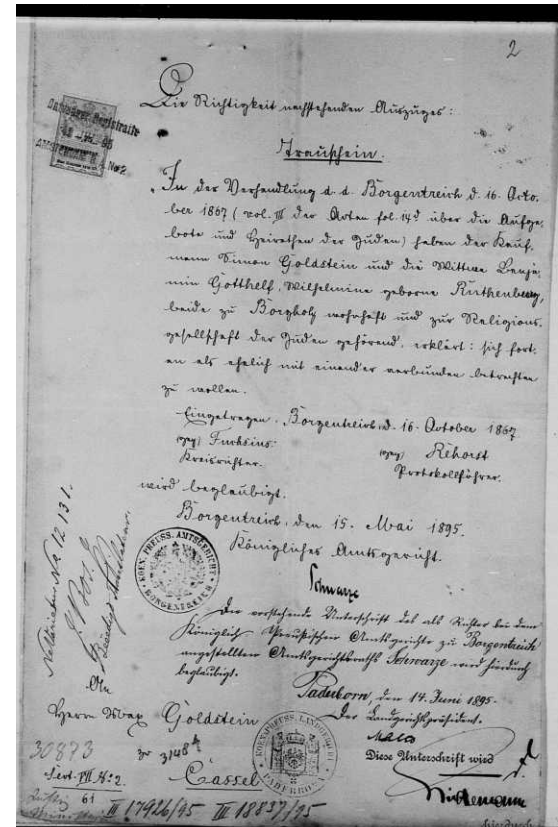 2
Die Richtigkeit nachstehenden Auszuges:
Trauschein.
In der Verhandlung d. d. Borgentreich d. 16. Octo-
ber 1867 (vol. III der Acten fol. 14 über die Aufge-
bote und Heirathen der Juden) haben der Kauf-
mann Simon Goldstein und die Wittwe Benja-
min Gotthelf, Wilhelmine geborne Ruthenberg,
beide zu Borgholz wohnhaft und zur Religions-
gesellschaft der Juden gehörend, erklärt: sich fort-
an als ehelich mit einander verbunden betrachten
zu wollen.
Eingetragen. Borgentreich, d. 16. October 1867
(gez) Fuchsius. (gez) Rehorst
Kreisrichter. Protokollführer.
wird beglaubigt.
Borgentreich, den 15. Mai 1895.
Königliches Amtsgericht.
KOEN. PREUSS. AMTSGERICHT
BORGENTREICH
Schwarze
Die vorstehende Unterschrift des als Richter bei dem
Königlich Preußischen Amtsgerichte zu Borgentreich
angestellten Amtsgerichtsraths Schwarze wird hierdurch
beglaubigt.
Paderborn, den 14. Juni 1895.
Der Landgerichtspräsident.
KOEN. PREUSS. LANDGERICHT
PADERBORN
Diese Unterschrift wird
An
Herrn Max Goldstein
zu 3148
Cassel
30873
61
III 17926/95 III 18837/95